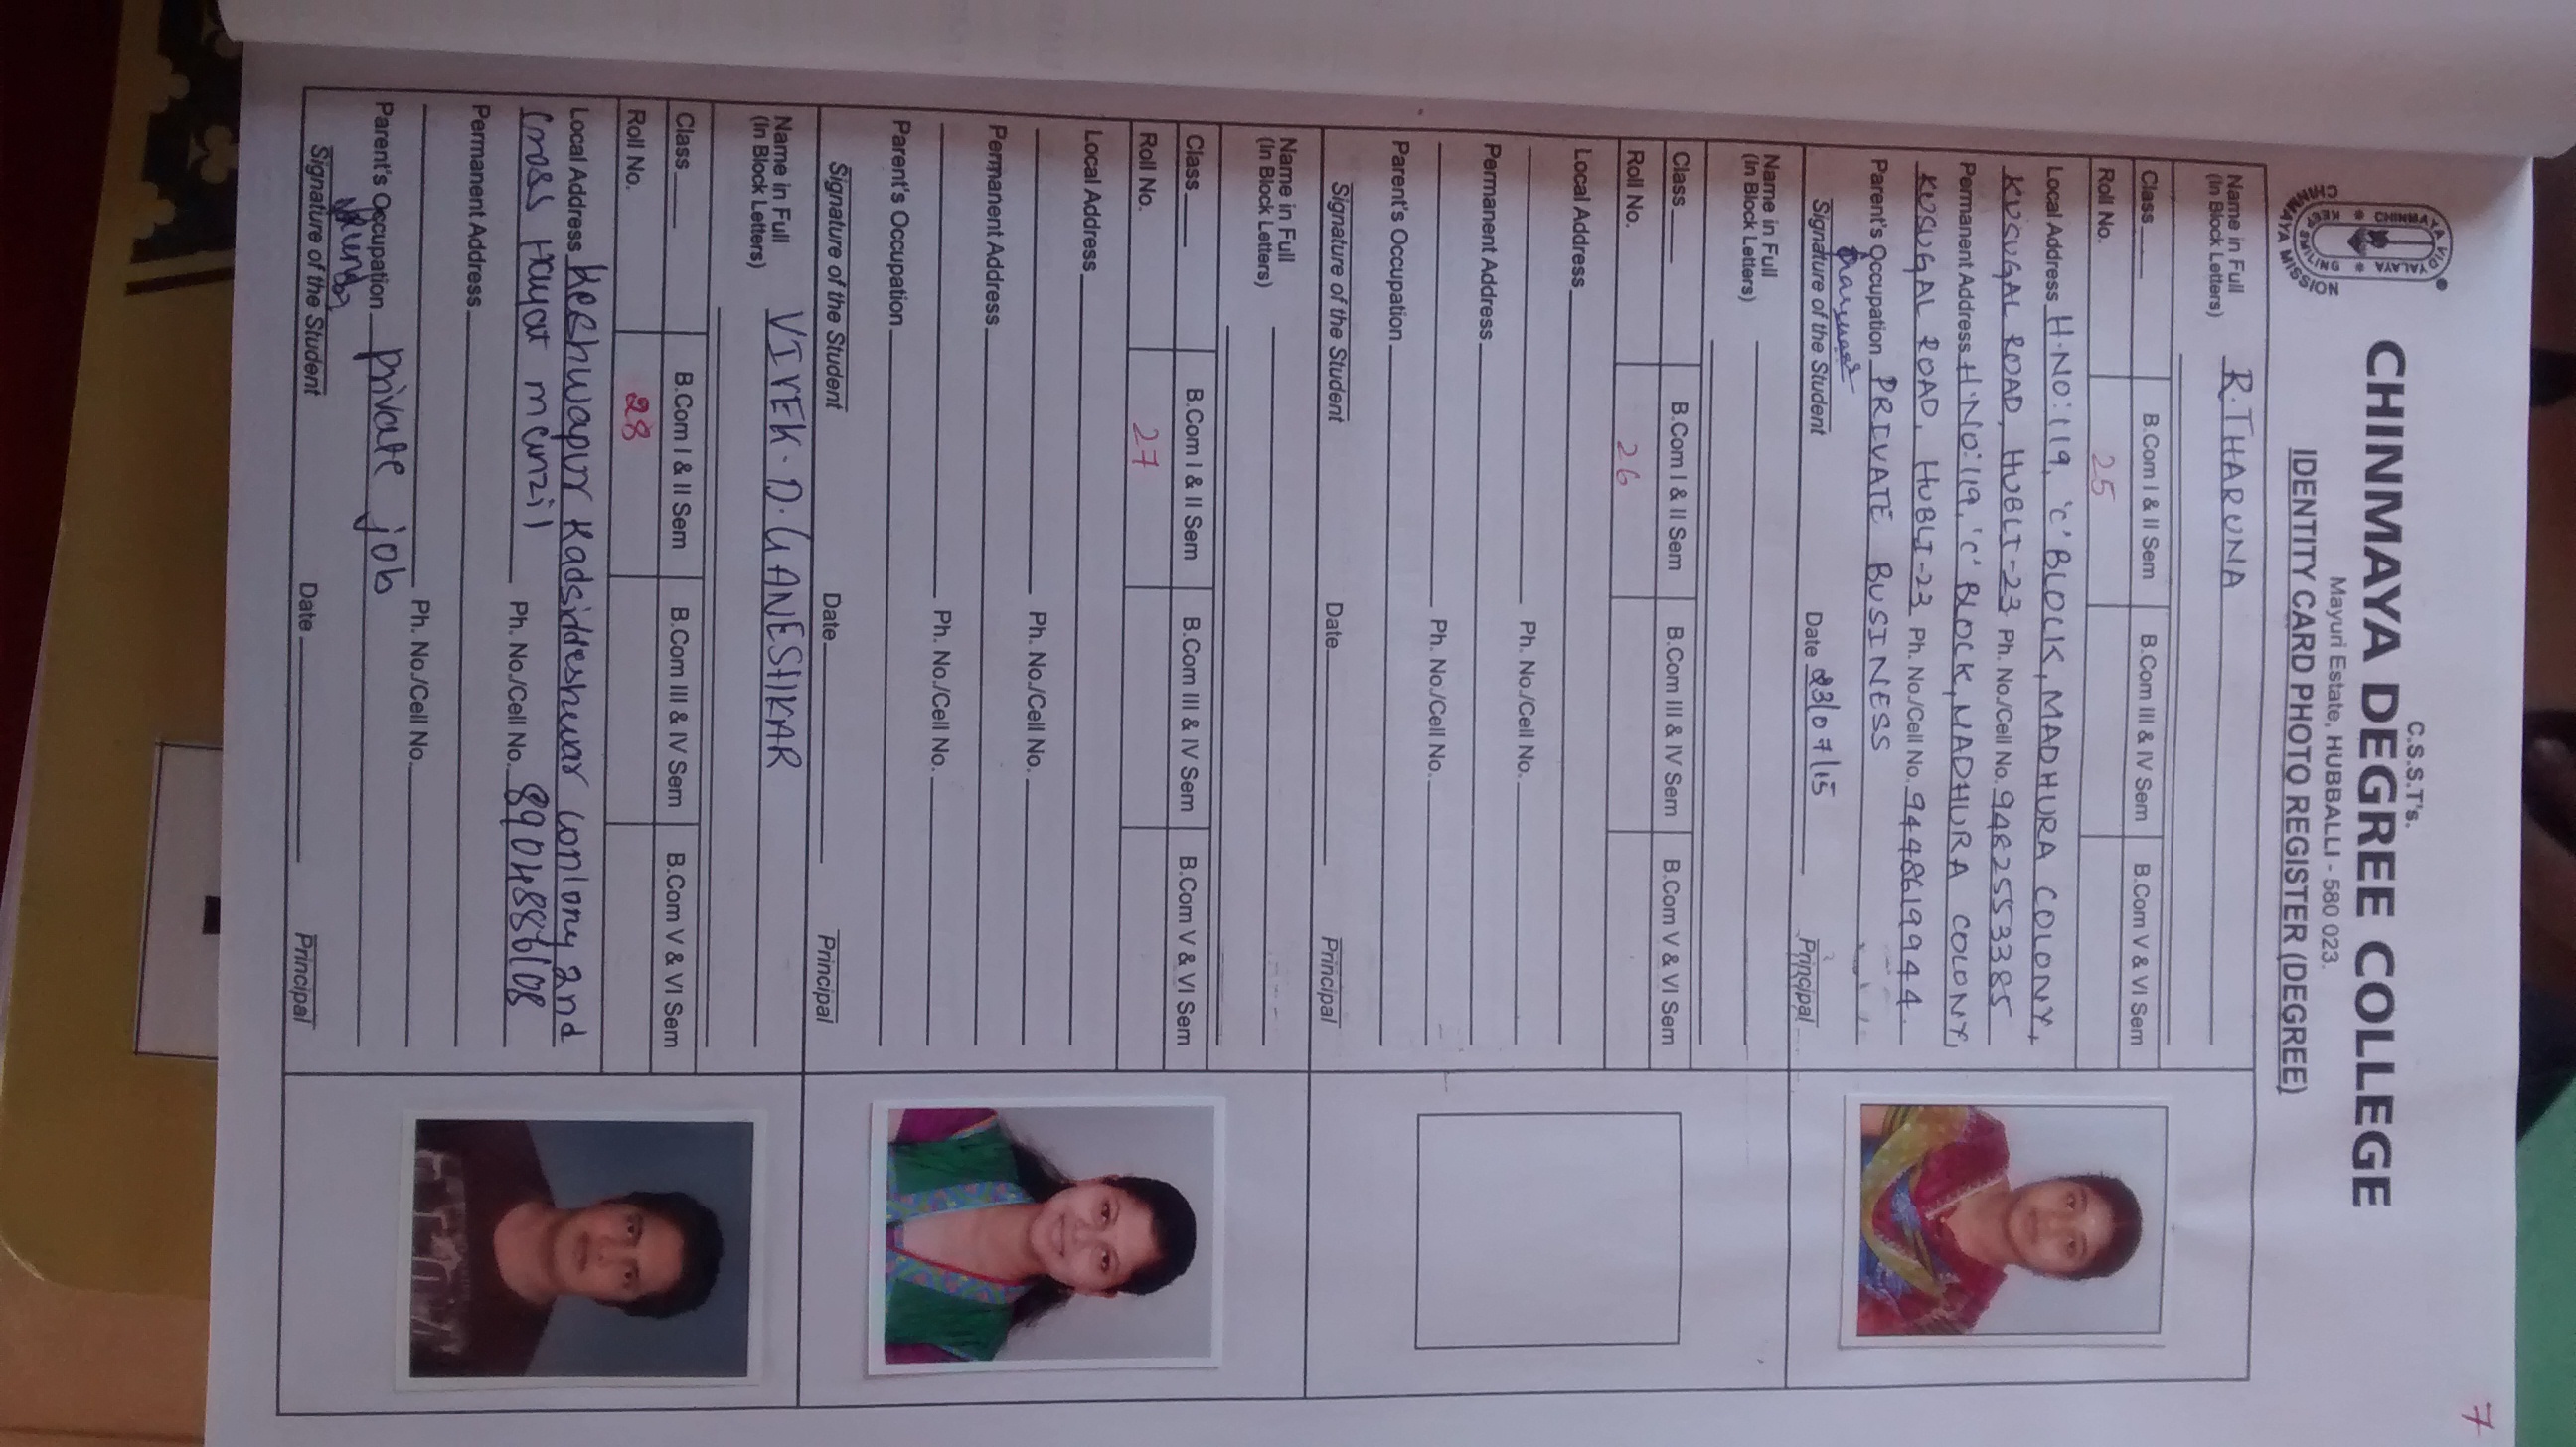 7
C.S.S.T's.
CHINMAYA DEGREE COLLEGE
Mayuri Estate, HUBBALLI - 580 023.
IDENTITY CARD PHOTO REGISTER (DEGREE)
CHINMAYA MISSION
KEEP SMILING
Name in Full R. THARUNA
(In Block Letters)
Class B.Com I & II Sem B.Com III & IV Sem B.Com V & VI Sem
Roll No. 25
Local Address H.NO:119, 'C' BLOCK, MADHURA COLONY,
KUSUGAL ROAD, HUBLI-23 Ph. No./Cell No. 9482553385
Permanent Address H.NO:119, 'C' BLOCK, MADHURA COLONY,
KUSUGAL ROAD, HUBLI-23 Ph. No./Cell No. 9448619944.
Parent's Occupation PRIVATE BUSINESS
Signature of the Student Date 23/07/15 Principal
Name in Full
(In Block Letters)
Class B.Com I & II Sem B.Com III & IV Sem B.Com V & VI Sem
Roll No. 26
Local Address
Ph. No./Cell No.
Permanent Address
Ph. No./Cell No.
Parent's Occupation
Signature of the Student Date Principal
Name in Full
(In Block Letters)
Class B.Com I & II Sem B.Com III & IV Sem B.Com V & VI Sem
Roll No. 27
Local Address
Ph. No./Cell No.
Permanent Address
Ph. No./Cell No.
Parent's Occupation
Signature of the Student Date Principal
Name in Full VIVEK. D. GANESHKAR
(In Block Letters)
Class B.Com I & II Sem B.Com III & IV Sem B.Com V & VI Sem
Roll No. 28
Local Address Keshwapur Kadsiddeshwar conlony 2nd
Cross Hayat manzil Ph. No./Cell No. 8904886108
Permanent Address
Ph. No./Cell No.
Parent's Occupation private job
Signature of the Student Date Principal